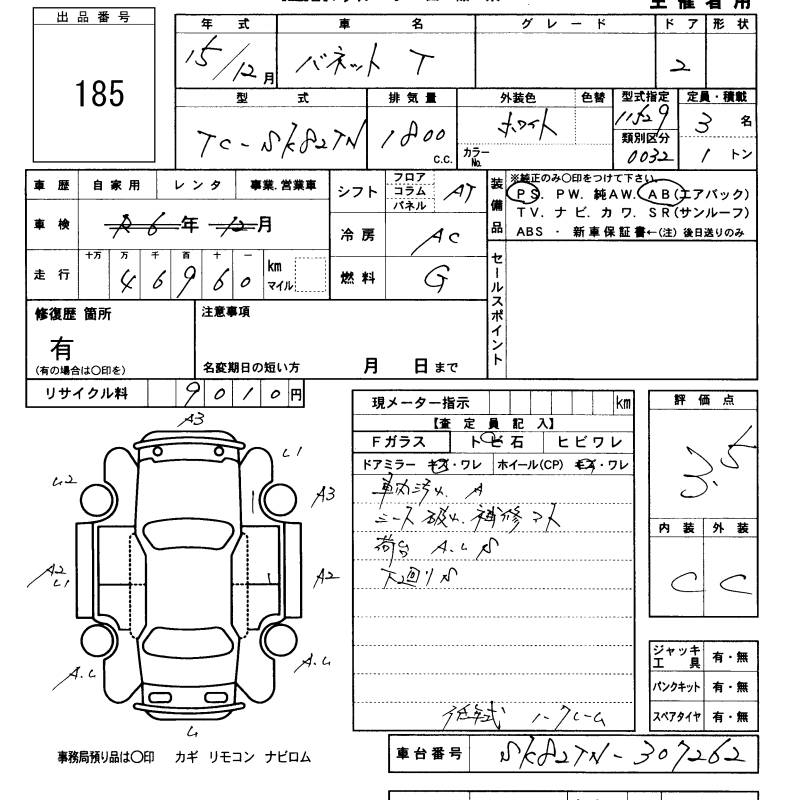 主催者用
出品番号
185
年式 車名 グレード ドア 形状
15/12月 バネット T 2
型式 排気量 外装色 色替 型式指定 定員・積載
TC-SK82TN 1800 C.C. ホワイト カラーNo. 11529 3名
類別区分
0032 1トン
車歴 自家用 レンタ 事業.営業車
シフト フロア コラム パネル AT
装備品 ※純正のみ〇印をつけて下さい。
PS. PW. 純AW. AB(エアバック)
TV. ナビ. カワ. SR(サンルーフ)
ABS ・ 新車保証書←(注) 後日送りのみ
車検 R6年 12月
冷房 AC
走行 十万 万 千 百 十 一
46960 km マイル
燃料 G
セールスポイント
修復歴 箇所
有
(有の場合は〇印を)
注意事項
名変期日の短い方 月 日まで
リサイクル料 9010円
現メーター指示 km
【査定員記入】
Fガラス トビ石 ヒビワレ
ドアミラー キズ・ワレ ホイール(CP) キズ・ワレ
車内汚れ. A
シート破れ. 補修マト
荷台 A.U S
下回りS
低年式 ノークレーム
評価点
3.5
内装 外装
C C
ジャッキ工具 有・無
パンクキット 有・無
スペアタイヤ 有・無
A3
U2
U1
A3
A2
U1
A2
A.U
A.U
U
事務局預り品は〇印 カギ リモコン ナビロム
車台番号 SK82TN-307262